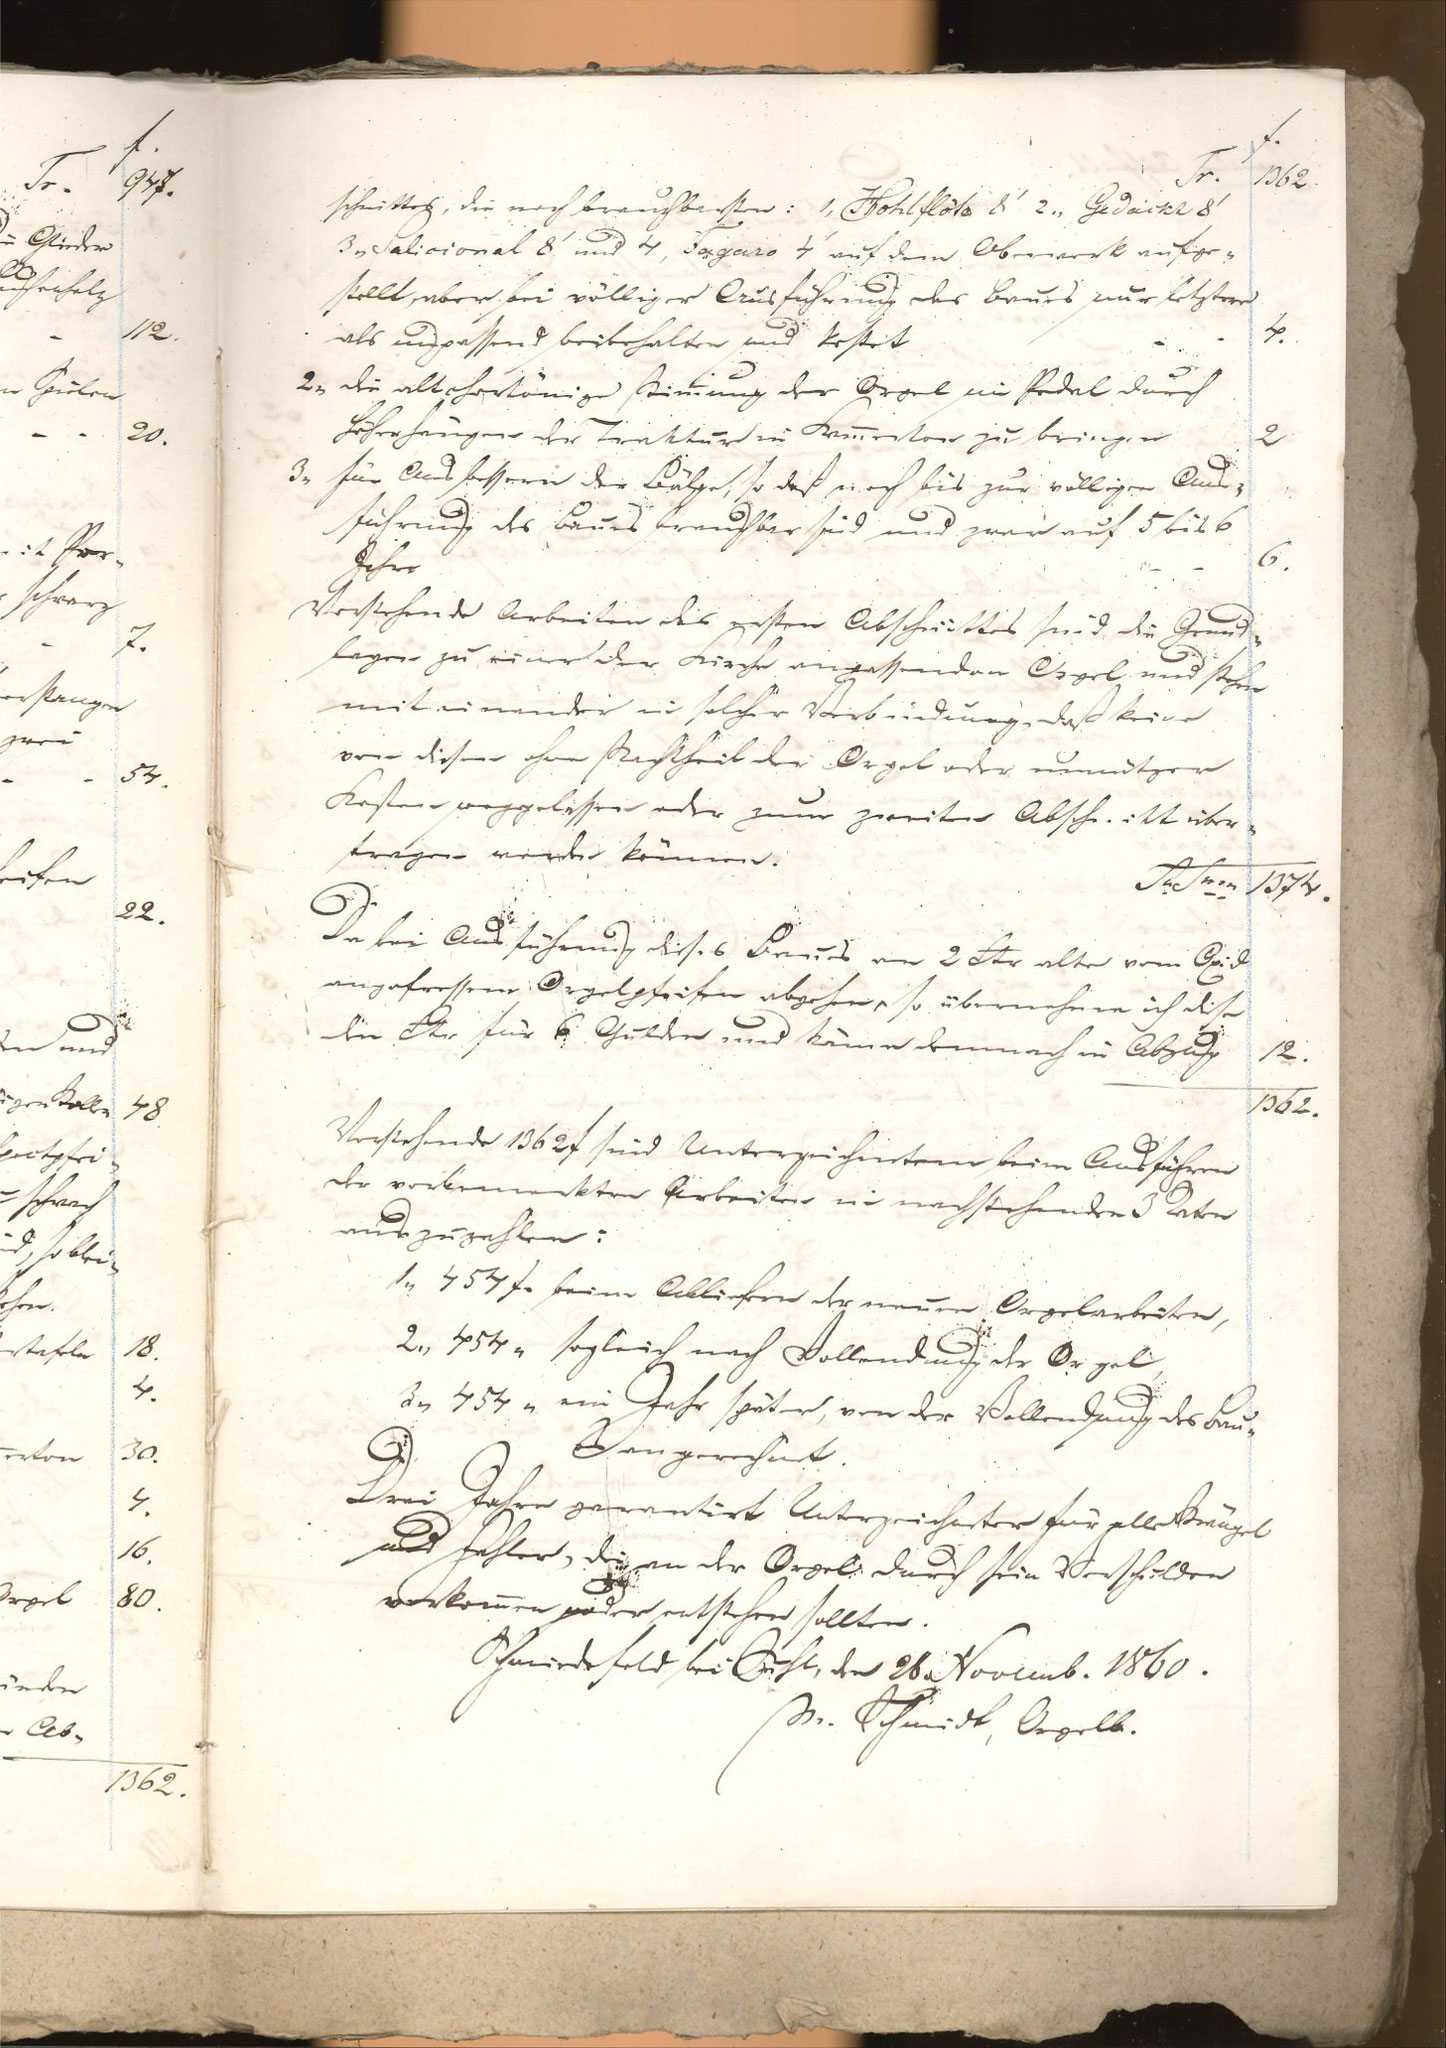 f.
Tr. 947.
112.
20.
7.
zwei
54.
22.
und
48
18.
4.
30.
4.
16.
Orgel 80.
Ab-
1362.
f.
Tr. 1362.
schnittes, die noch brauchbarsten: 1, Hohlflöte 8' 2„ Gedackt 8'
3„ Salicional 8' und 4, Fugara 4' auf dem Oberwerk aufge-
stellt, aber bei völliger Ausführung des Baues nur letztere
als unpassend beibehalten und kostet - - 4.
2„ die alt chortönige Stimmung der Orgel im Pedal durch
Höherhängen der Traktur in Kammerton zu bringen 2
3„ für Ausbessern der Bälge, so daß noch bis zur völligen Aus-
führung des Baues brauchbar sind und zwar auf 5 bis 6
Jahre - - 6.
Vorstehende Arbeiten des ersten Abschnittes sind die Grund-
lagen zu einer der Kirche anpassenden Orgel und stehen
mit einander in solcher Verbindung, daß keine
von diesen ohne Nachtheil der Orgel oder unnützen
Kosten weggelassen oder zum zweiten Abschnitt über-
tragen werden können.
Sa. Sum 1374.
Da bei Ausführung dieses Baues an 2 Ctr alte vom Oxid
angefressene Orgelpfeifen abgehen, so übernehme ich diese
den Ctr. für 6 Gulden und käme demnach in Abzug 12.
1362.
Vorstehende 1362 f sind Unterzeichnetem beim Ausführen
der vorbemerkten Arbeiten in nachstehenden 3 Raten
auszuzahlen:
1„ 454 f. beim Abliefern der neuen Orgelarbeiten,
2„ 454 „ sogleich nach Vollendung der Orgel,
3„ 454 „ ein Jahr später, von der Vollendung des Bau-
es angerechnet.
Drei Jahre garantirt Unterzeichneter für alle Mängel
und Fehler, die an der Orgel durch sein Verschulden
vorkommen oder entstehen sollten.
Schmiedefeld bei Suhl, den 28. Novemb. 1860.
Schmidt, Orgelb.